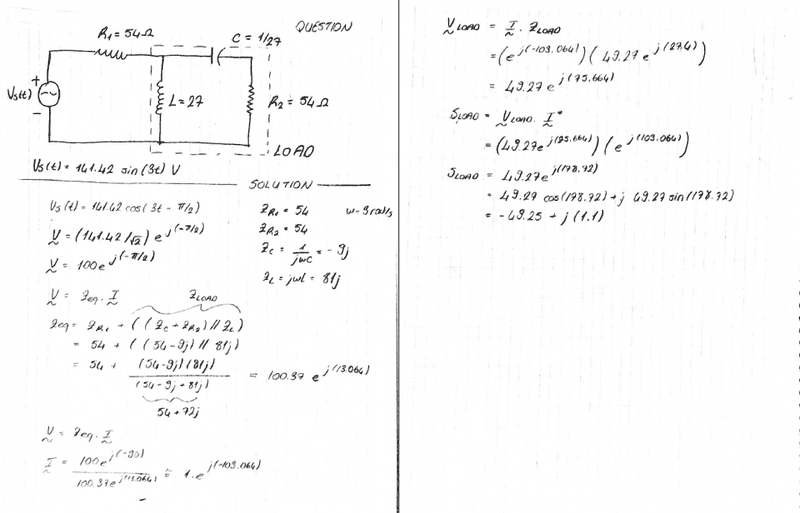 QUESTION
R₁ = 54Ω
C = 1/27
Vs(t)
+
-
L = 27
R₂ = 54Ω
LOAD
Vs(t) = 141.42 sin(3t) V
SOLUTION
Vs(t) = 141.42 cos(3t - π/2)
Z_R1 = 54
w-3rad/s
V = (141.42/√2) e^j(-π/2)
Z_R2 = 54
V = 100e^j(-π/2)
Z_C = 1/jωC = -9j
Z_L = jωL = 81j
V = Zeq . I
Z_LOAD
Zeq = Z_R1 + ((Z_C + Z_R2) // Z_L)
= 54 + ((54-9j) // 81j)
= 54 + (54-9j)(81j) / (54-9j+81j) = 100.37 e^j(13.064)
54+72j
V = Zeq . I
I = 100e^j(-90) / 100.37e^j(13.064) ≅ 1.e^j(-103.064)
V_LOAD = I . Z_LOAD
= (e^j(-103.064)) (49.27 e^j(27.4))
= 49.27 e^j(75.664)
S_LOAD = V_LOAD . I*
= (49.27e^j(75.664)) (e^j(103.064))
S_LOAD = 49.27e^j(178.72)
= 49.27 cos(178.72) + j 49.27 sin(178.72)
= -49.25 + j(1.1)